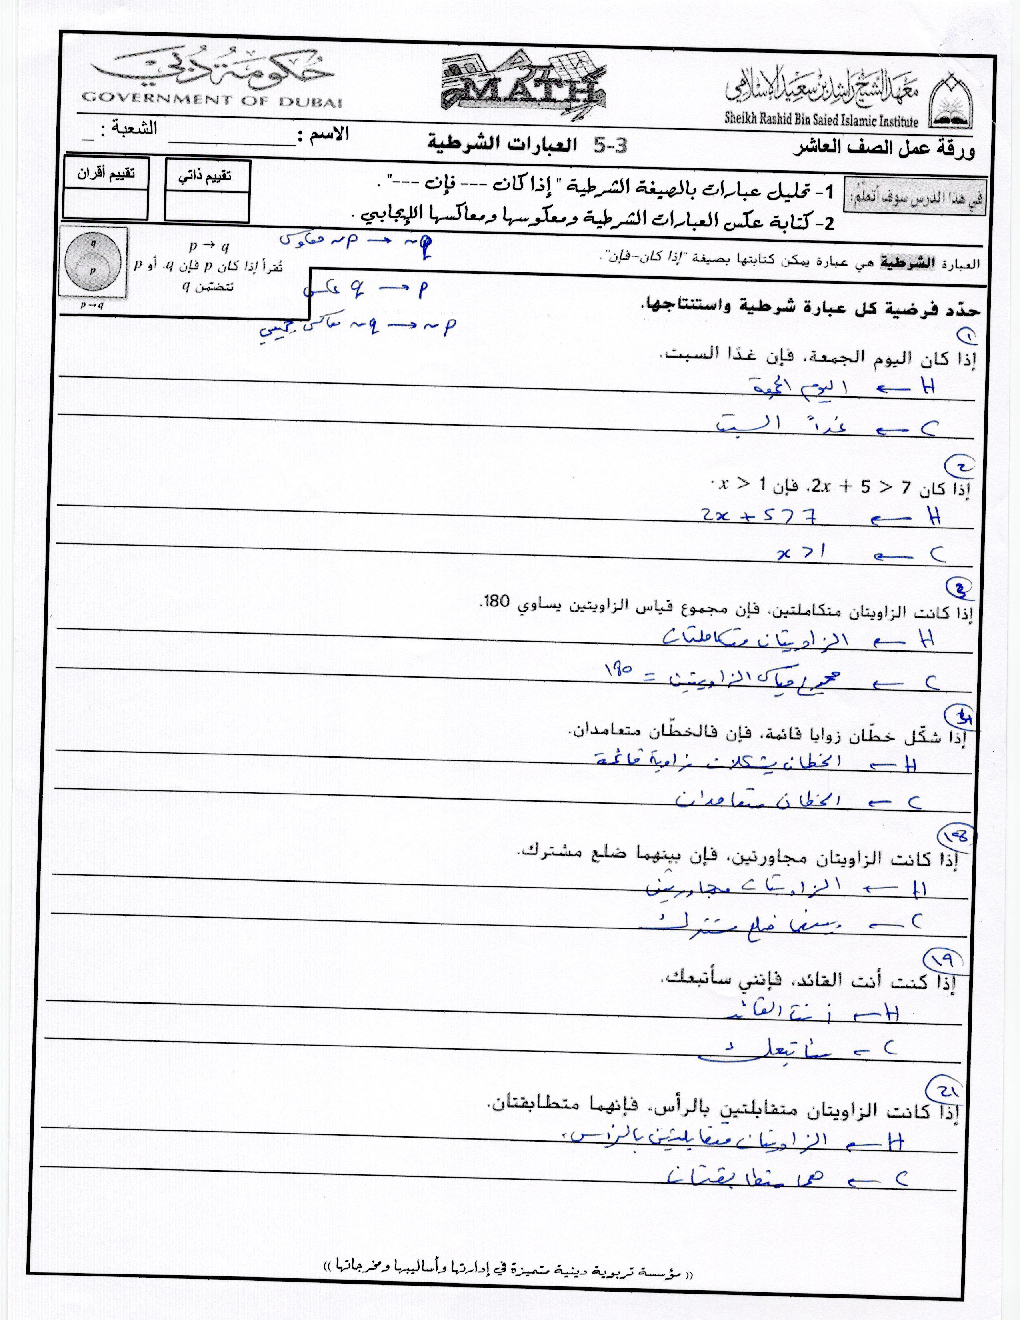 حكومة دبي
GOVERNMENT OF DUBAI
MATH
معهد الشيخ راشد بن سعيد الإسلامي
Sheikh Rashid Bin Saied Islamic Institute
ورقة عمل الصف العاشر
5-3 العبارات الشرطية
الاسم : ____________ الشعبة : _
في هذا الدرس سوف أتعلم:
1- تحليل عبارات بالصيغة الشرطية " إذا كان --- فإن ---" .
2- كتابة عكس العبارات الشرطية ومعكوسها ومعاكسها الإيجابي .
تقييم ذاتي
تقييم أقران
العبارة الشرطية هي عبارة يمكن كتابتها بصيغة "إذا كان-فإن".
p → q
تُقرأ إذا كان p فإن q. أو p
تتضمن q
q
p
p→q
~p → ~q معكوس
q → p عكس
~q → ~p معاكس
حدّد فرضية كل عبارة شرطية واستنتاجها.
١
إذا كان اليوم الجمعة، فإن غدًا السبت.
H ← اليوم الجمعة
C ← غداً السبت
2
إذا كان 2x + 5 > 7، فإن x > 1 .
H ← 2x + 5 > 7
C ← x > 1
3
إذا كانت الزاويتان متكاملتين، فإن مجموع قياس الزاويتين يساوي 180.
H ← الزاويتان متكاملتان
C ← مجموع قياس الزاويتين = ١٨٠
إذا شكّل خطّان زوايا قائمة، فإن فالخطّان متعامدان.
H ← الخطان يشكلان زاوية قائمة
C ← الخطان متعامدان
إذا كانت الزاويتان مجاورتين، فإن بينهما ضلع مشترك.
H ← الزاويتان مجاورتين
C ← بينهما ضلع مشترك
١٩
إذا كنت أنت القائد، فإنني سأتبعك.
H ← أنت القائد
C ← سأتبعك
21
إذا كانت الزاويتان متقابلتين بالرأس، فإنهما متطابقتان.
H ← الزاويتان متقابلتين بالرأس.
C ← هما متطابقتان
(( مؤسسة تربوية دينية متميزة في إدارتها وأساليبها ومخرجاتها ))